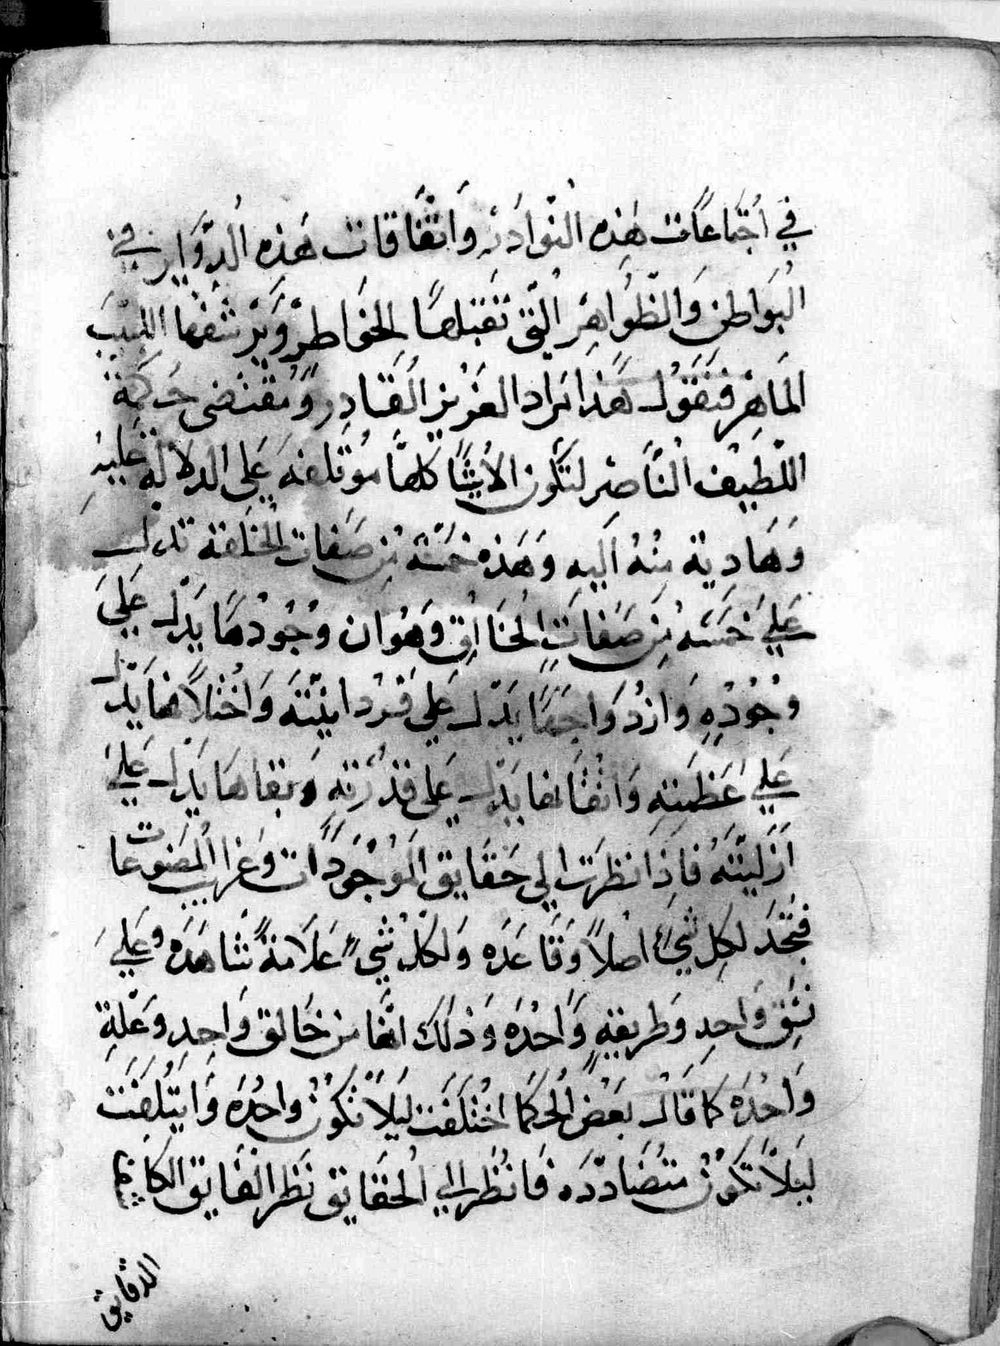 في اجتماعات هذه النوادر واتفاقات هذه الدواير في
البواطن والظواهر التي تقبلها الخواطر ويرتشفها اللبيب
الماهر فنقول هذا مراد العزيز القادر ومقتضى حكمة
اللطيف الناصر لتكون الاشيا كلها موتلفة على الدلالة عليه
وهادية منه اليه وهذه خمسة من صفات الخلقة تدل
على خمسة من صفات الخالق وهو ان وجودها يدل على
وجوده وازدواجها يدل على فردانيته واختلافها يدل
على عظمته واتفاقها يدل على قدرته وبقاها يدل على
ازليته فاذا نظرت الى حقايق الموجودات وغرايب المصنوعات
فتجد لكل شيء اصلاً وقاعده ولكل شيء علامة شاهده وعلى
نسق واحد وطريقةٍ واحده وذلك انها من خالق واحد وعلة
واحده كما قال بعض الحكما اختلفت ليلا تكون واحده وايتلفت
ليلا تكون متضادده فانظر الى الحقايق نظر الفايق الكاشف
الدقايق